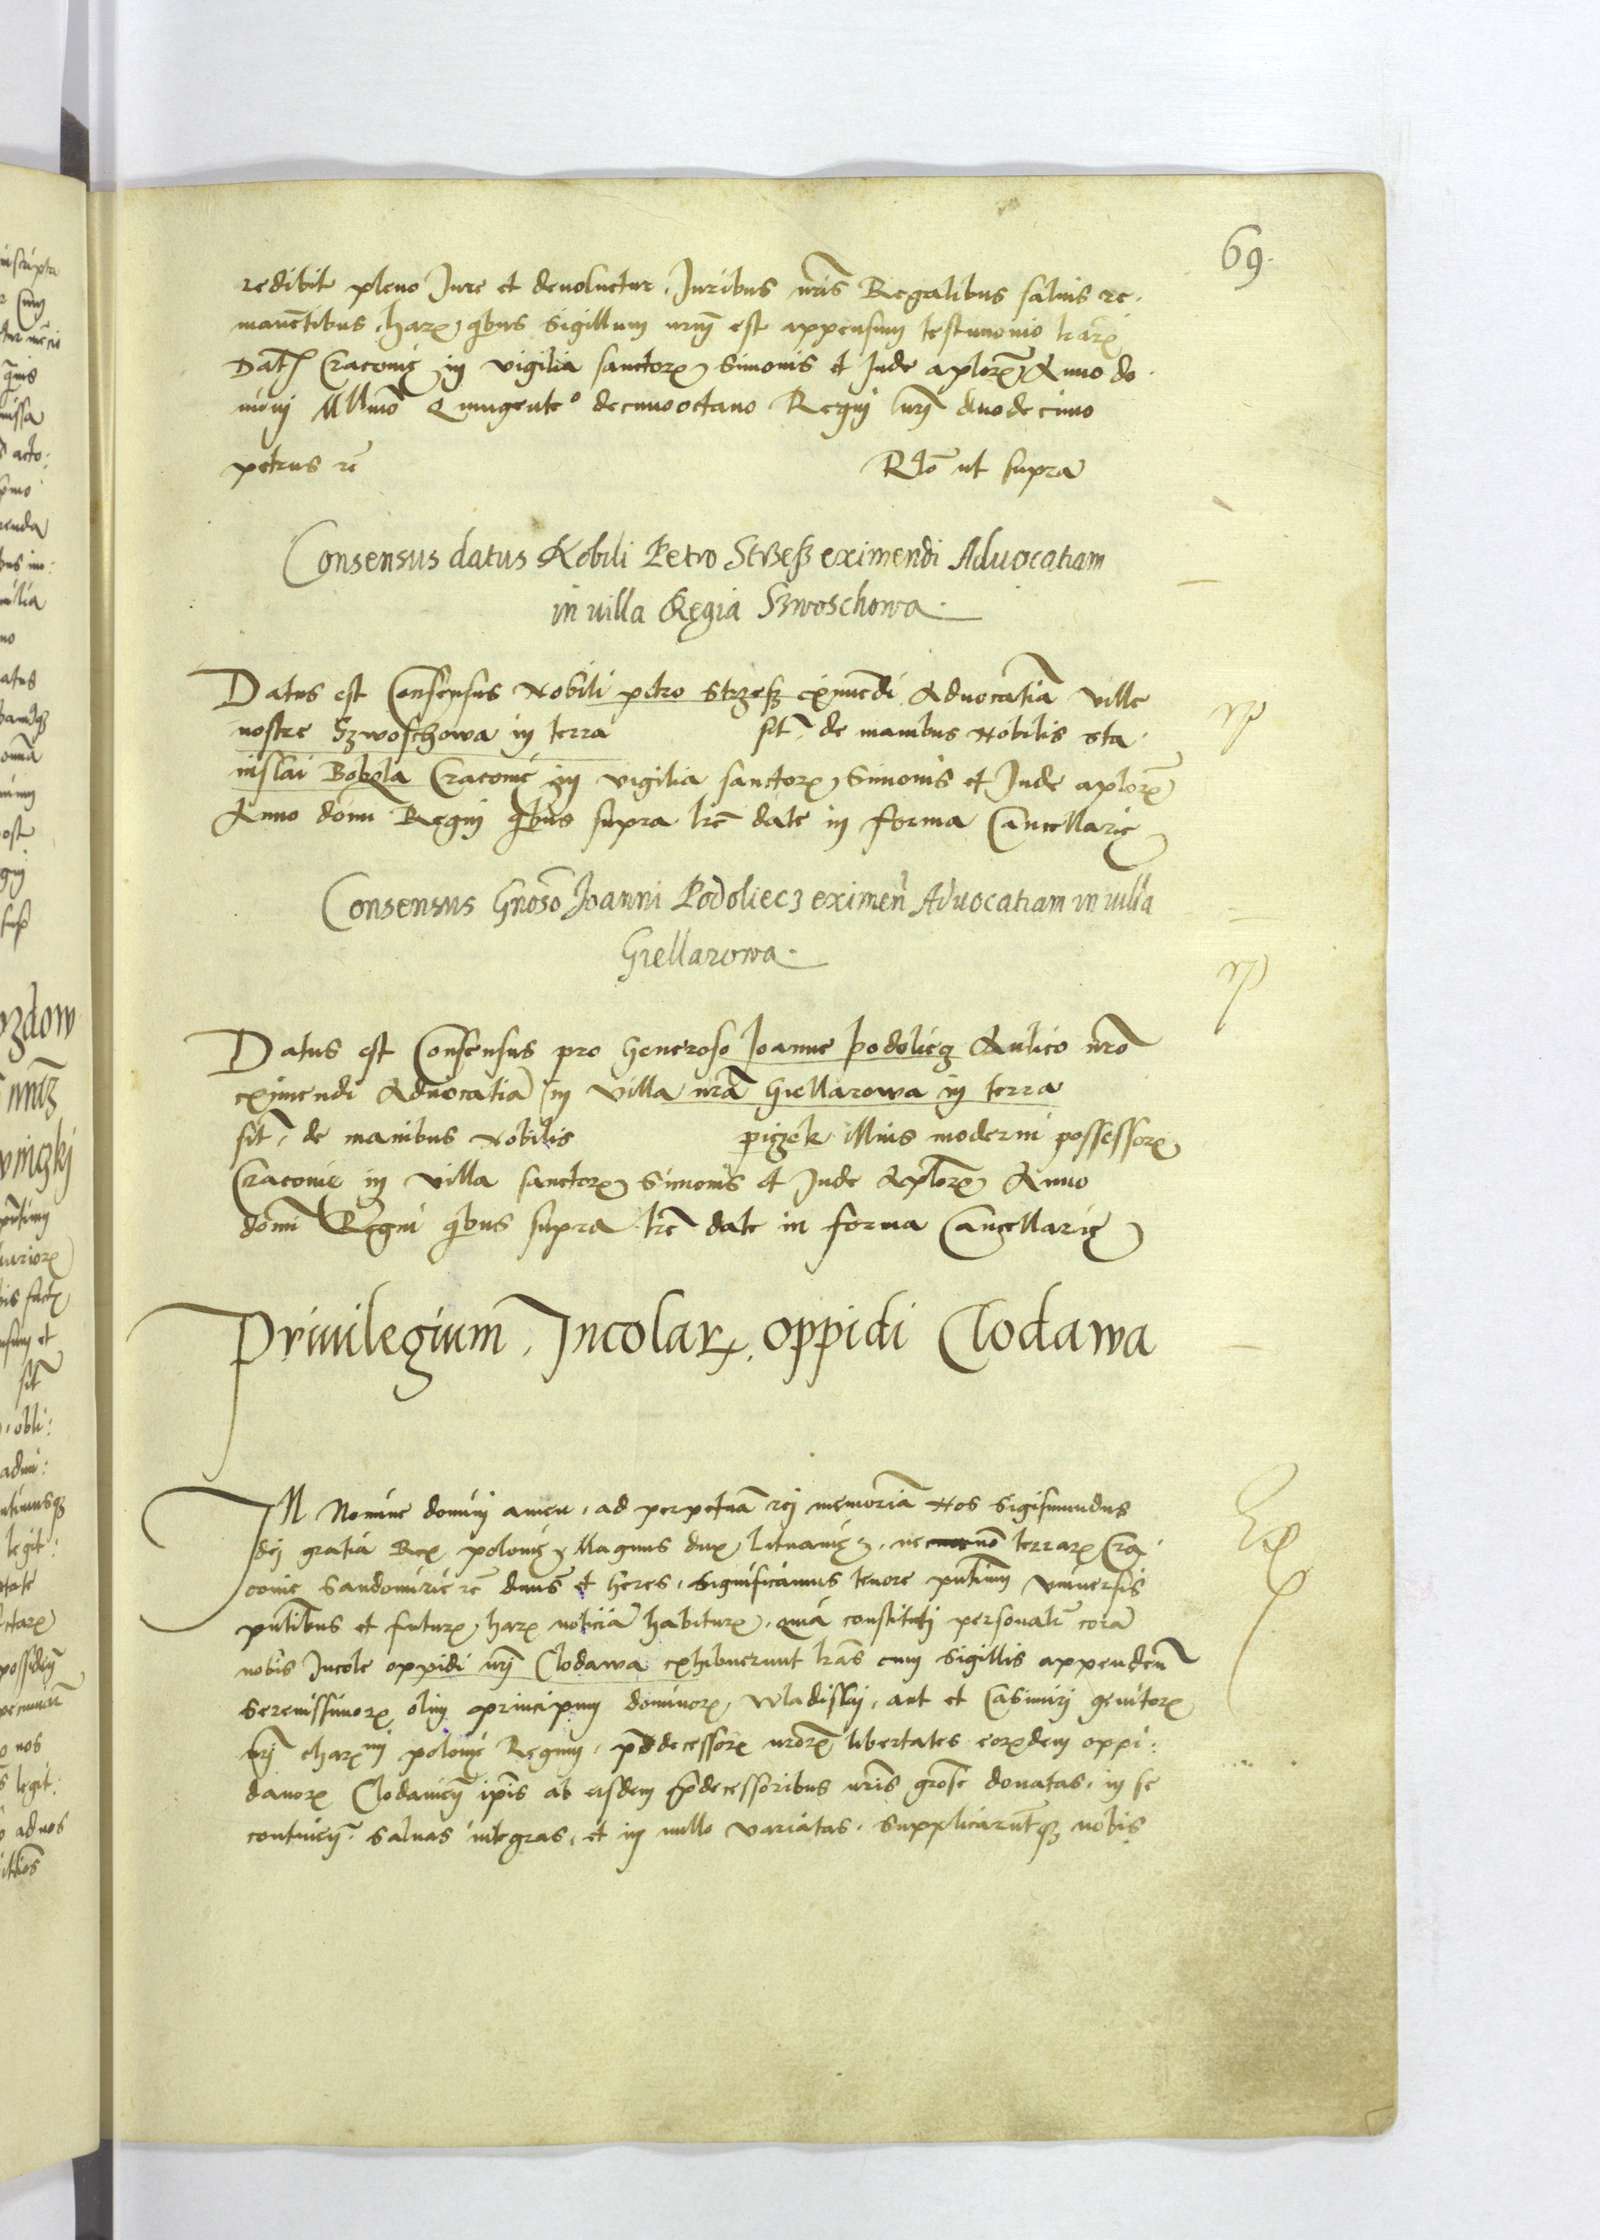 69.
redibit pleno Jure et devoluetur. Juribus nr̃is Regalibus salvis re.
manẽtibus harꝝ qbus Sigillum nrm̃ est appensum testimonio lrarꝝ
Dat̃ Cracovię in vigilia sanctorꝝ Simonis et Jude aplorꝝ Anno do.
mini Mllmo Quingente° decimooctavo Regni nrĩ duodecimo
petrus rc̃
Rlõ ut supra
Consensus datus Nobili Petro Strzesz eximendi Advocatiam
in villa Regia Szwoschowa.
Datus est Consensus Nobili petro Strzesz eximẽdi Advocatiã ville
nostre Szwoschowa in terra sit̃. de manibus Nobilis Sta
nislai Bobola Cracovię in vigilia sanctorꝝ Simonis et Jude aplorꝝ
Anno domĩ Regni qbus supra lrẽ date in forma Cancellarię
Consensus Gñoso Joanni Podoliecz eximeñ Advocatiam in villa
Giellarowa.
Datus est Consensus pro Generoso Joanne podolieg Aulico nrõ
eximendi Advocatiã in villa nrã Giellarowa in terra
sit̃. de manibus Nobilis piզek illius moderni possessorꝭ
Cracovie in villa sanctorꝝ Simonis et Jude Aplorꝝ Anno
domĩ Regni qbus supra lrẽ date in forma Cancellarię
Privilegium Incolarꝝ oppidi Clodawa
IN Nomine domini amen. ad perpetuã rei memoriã Nos Sigismundus
dei gratia Rex polonię Magnus dux Lituanię. nec nõ terrarꝝ Cra
covie Sandomirie rc̃ dnus et heres. Significamus tenore pñtium universis
pñtibus et futurꝭ harꝝ noticiã habiturꝭ. quia constituti personalr̃ corã
nobis Incole oppidi nrĩ Clodawa exhibuerunt lrãs cum Sigillis appendeñ
Serenissimorꝝ olim principum dominorꝝ Wladislai. aut et Casimiri genitorꝭ
nrĩ charmi polonię Regum. p̃decessorꝝ nrõrꝝ libertates eorꝝdem oppi.
danorꝝ Clodavieñ ipĩs ab eisdem p̃decessoribus nrĩs grõse donatas. in se
continẽ. salvas integras. et in nullo variatas. Supplicarũtqꝫ nobis